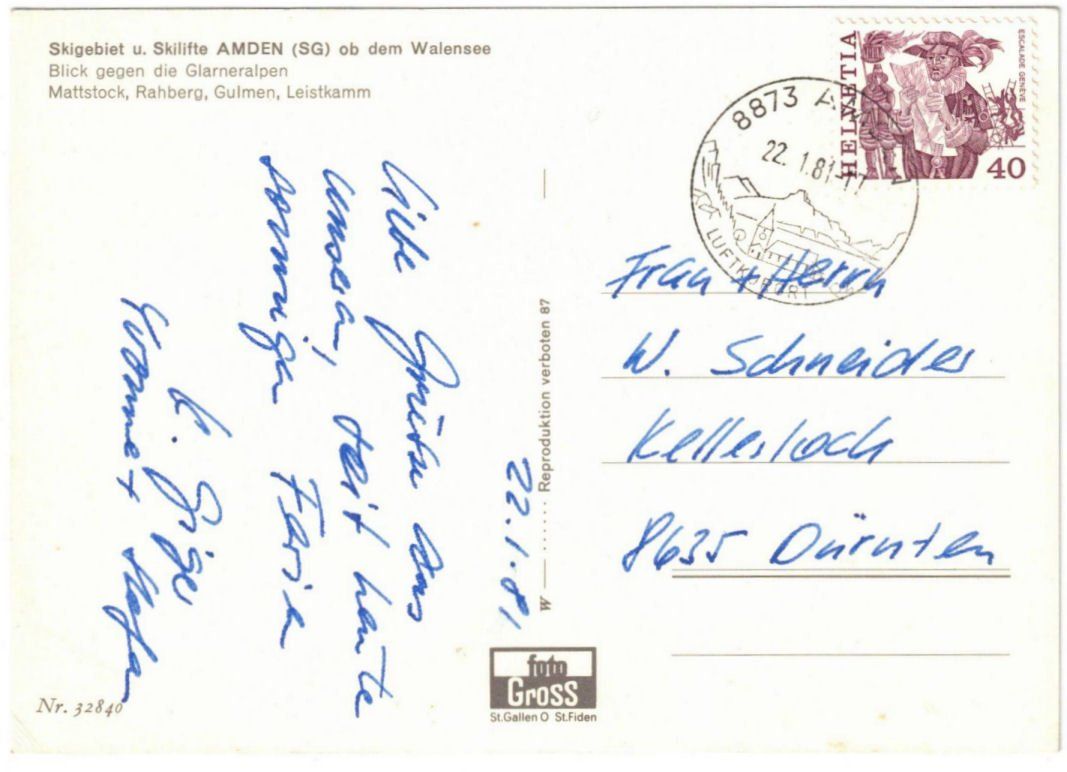 Skigebiet u. Skilifte AMDEN (SG) ob dem Walensee
Blick gegen die Glarneralpen
Mattstock, Rahberg, Gulmen, Leistkamm
HELVETIA
ESCALADE GENÈVE
40
8873 AMDEN
22.1.81-17
LUFTKURORT
22.1.81
Liebe Grüsse aus
unseren, seit heute
sonnigen Ferien
Yvonne +
Frau + Herrn
W. Schneider
Kellerloch
8635 Dürnten
W ...... Reproduktion verboten 87
foto
Gross
St.Gallen O St.Fiden
Nr. 32840